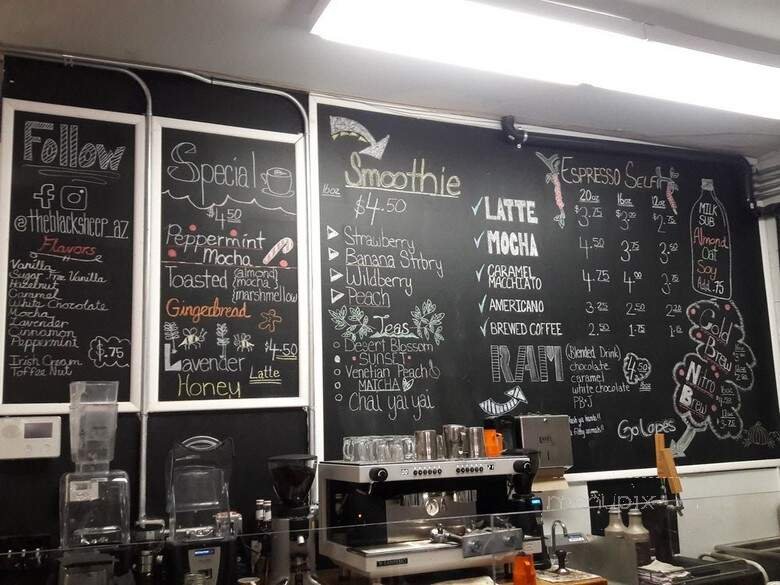 Follow
@theblacksheep_az
Flavors
Vanilla
Sugar Free Vanilla
Hazelnut
Caramel
White Chocolate
Mocha
Lavender
Cinnamon
Peppermint
$.75
Irish Cream
Toffee Nut
Special
$4.50
Peppermint
Mocha
Toasted {almond}
{mocha}
{marshmellow
Gingerbread
Lavender
$4.50
Honey
Latte
16oz
Smoothie
$4.50
Strawberry
Banana Strbry
Wildberry
Peach
Teas
Desert Blossom
Sunset
Venetian Peach
Matcha
Chai yai yai
Espresso Self
20oz 16oz 12oz
Latte $3.75 $3.00
Mocha 4.50 3.75 3.50
Caramel
Macchiato 4.75 4.00
Americano 3.25 2.50 2.20
Brewed Coffee 2.50 1.75
Milk
Sub
Almond
Oat
Soy
Add .75
RAM
(Blended Drink)
chocolate
caramel
white chocolate
PB&J
4.50
Go Lopes
Cold
Brew
Nitro
Brew
menupix